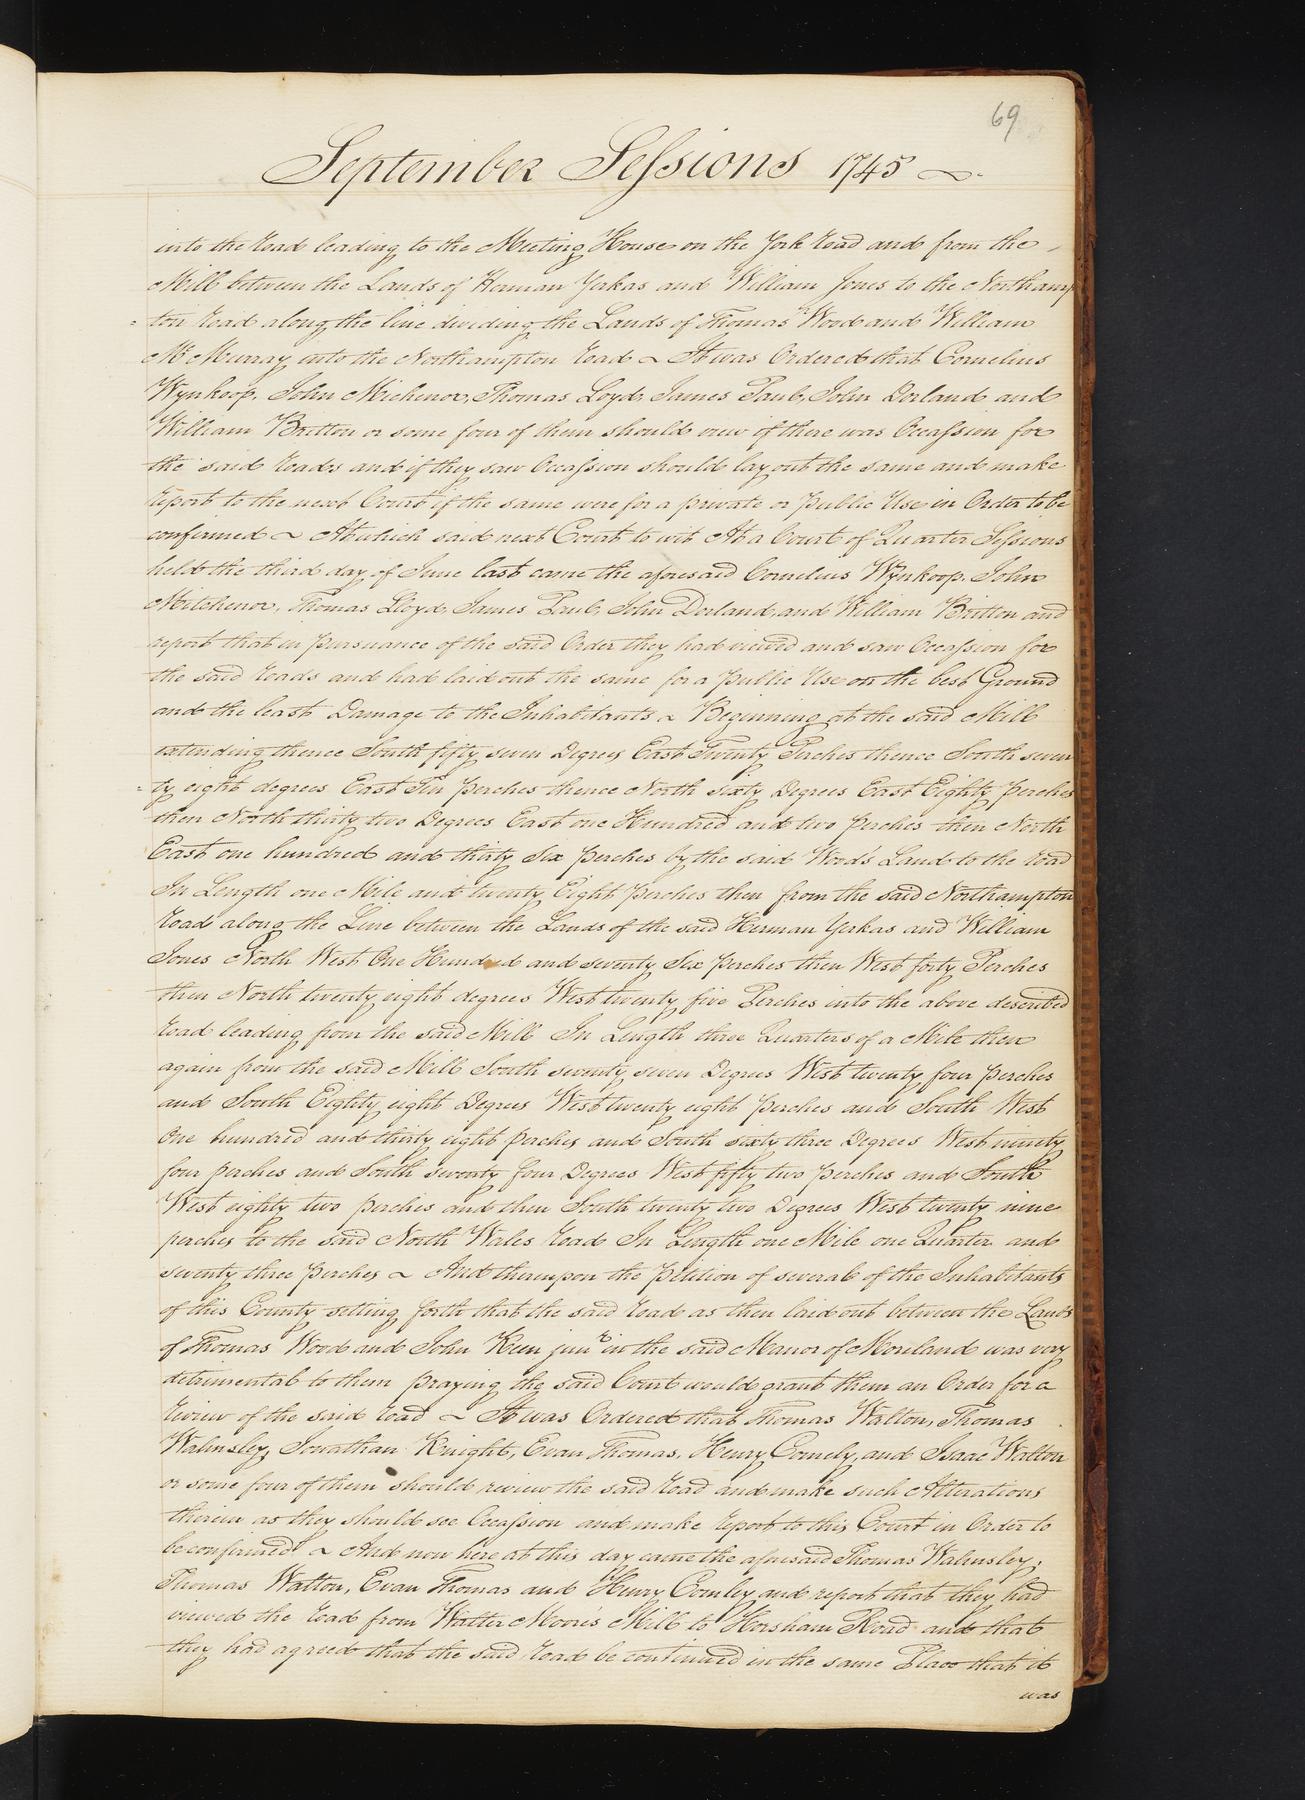 69
September Sessions 1745
into the road leading to the Meeting House on the York road and from the
Mill between the Lands of Herman Yerkas and William Jones to the Northamp
= ton road along the line dividing the Lands of Thomas Wood and William
Mc Murray into the Northampton road ~ It was Ordered that Cornelius
Wynkoop, John Michenor, Thomas Loyd, James Paul, John Dorland and
William Britton or some four of them should view if there was Occassion for
the said roads and if they saw Occassion should lay out the same and make
report to the next Court if the same were for a private or public Use in Order to be
confirmed ~ At which said next Court to wit At a Court of Quarter Sessions
held the third day of June last came the aforesaid Cornelius Wynkoop, John
Mitchenor, Thomas Lloyd, James Paul, John Dorland, and William Britton and
report that in pursuance of the said Order they had viewed and saw Occassion for
the said roads and had laid out the same for a public Use on the best Ground
and the least Damage to the Inhabitants ~ Beginning at the said Mill
extending thence South fifty seven Degrees East Twenty Perches thence South seven
= ty eight degrees East Ten perches thence North sixty Degrees East Eighty perches
then North thirty two Degrees East one Hundred and two perches then North
East one hundred and thirty Six perches by the said Woods Land to the road
In Length one Mile and twenty Eight perches then from the said Northampton
road along the Line between the Lands of the said Herman Yerkas and William
Jones North West One Hundred and seventy Six perches then West forty Perches
then North twenty eight degrees West twenty five Perches into the above described
road leading from the said Mill In Length three Quarters of a Mile then
again from the said Mill South seventy seven Degrees West twenty four perches
and South Eighty eight Degrees West twenty eight perches and South West
One hundred and thirty eight perches and South sixty three Degrees West ninety
four perches and South seventy four Degrees West fifty two perches and South
West eighty two perches and then South twenty two Degrees West twenty nine
perches to the said North Wales road In Length one Mile one Quarter and
seventy three perches ~ And thereupon the petition of several of the Inhabitants
of this County setting forth that the said road as then laid out between the Lands
of Thomas Wood and John Keen junr in the said Manor of Moreland was very
detrimental to them praying the said Court would grant them an Order for a
review of the said road ~ It was Ordered that Thomas Walton, Thomas
Walmsley, Jonathan Knight, Evan Thomas, Henry Comely, and Isaac Walton
or some four of them should review the said road and make such Alterations
therein as they should see Occassion and make report to this Court in Order to
be confirmed ~ And now here at this day came the aforesaid Thomas Walmsley,
Thomas Walton, Evan Thomas and Henry Comley and report that they had
viewed the road from Walter Moore's Mill to Horsham Road and that
they had agreed that the said road be continued in the same Place that it
was